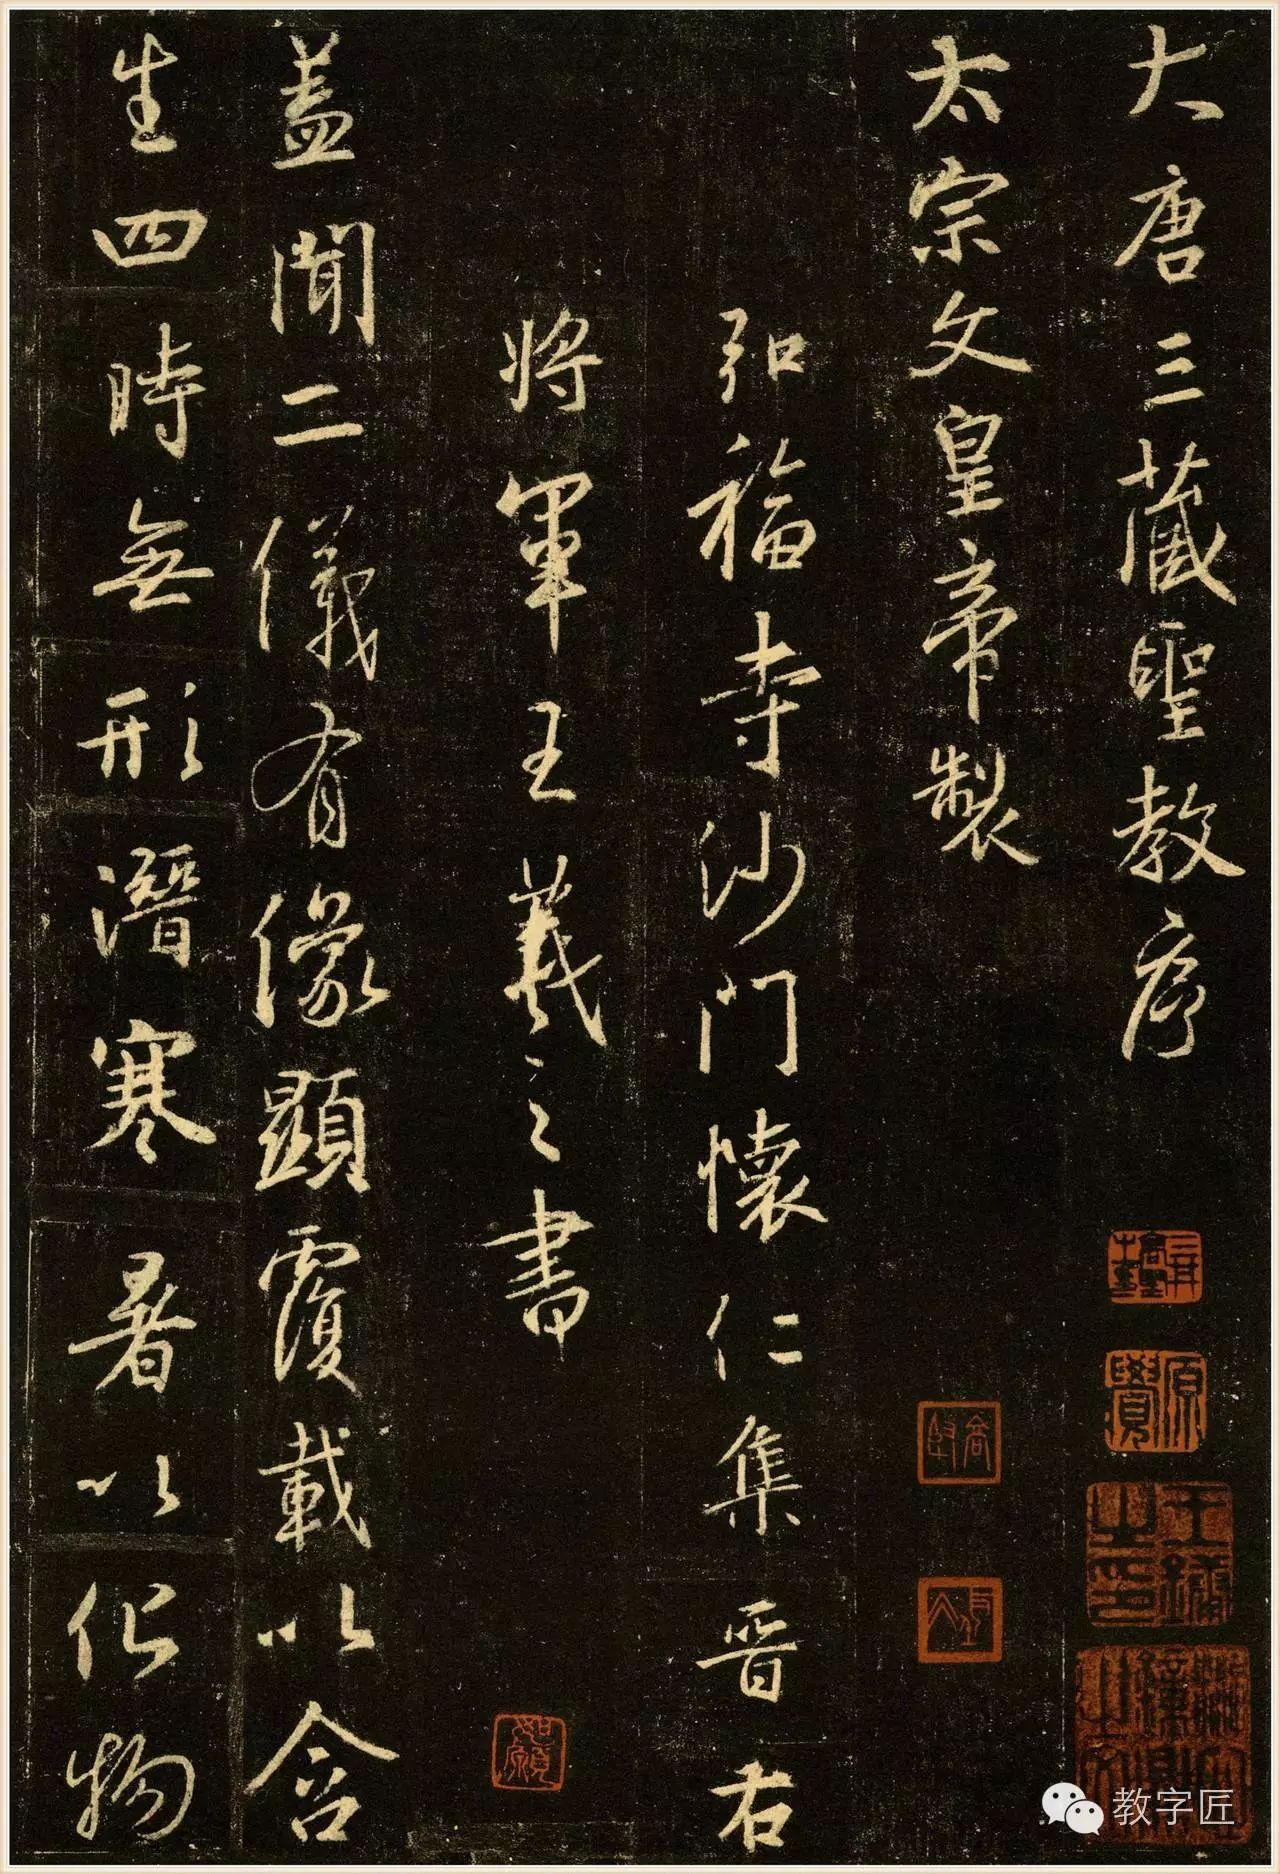 大唐三藏聖教序
太宗文皇帝製
弘福寺沙門懷仁集晉右
將軍王羲之書
蓋聞二儀有像顯覆載以含
生四時無形潛寒暑以化物
如願
教字匠